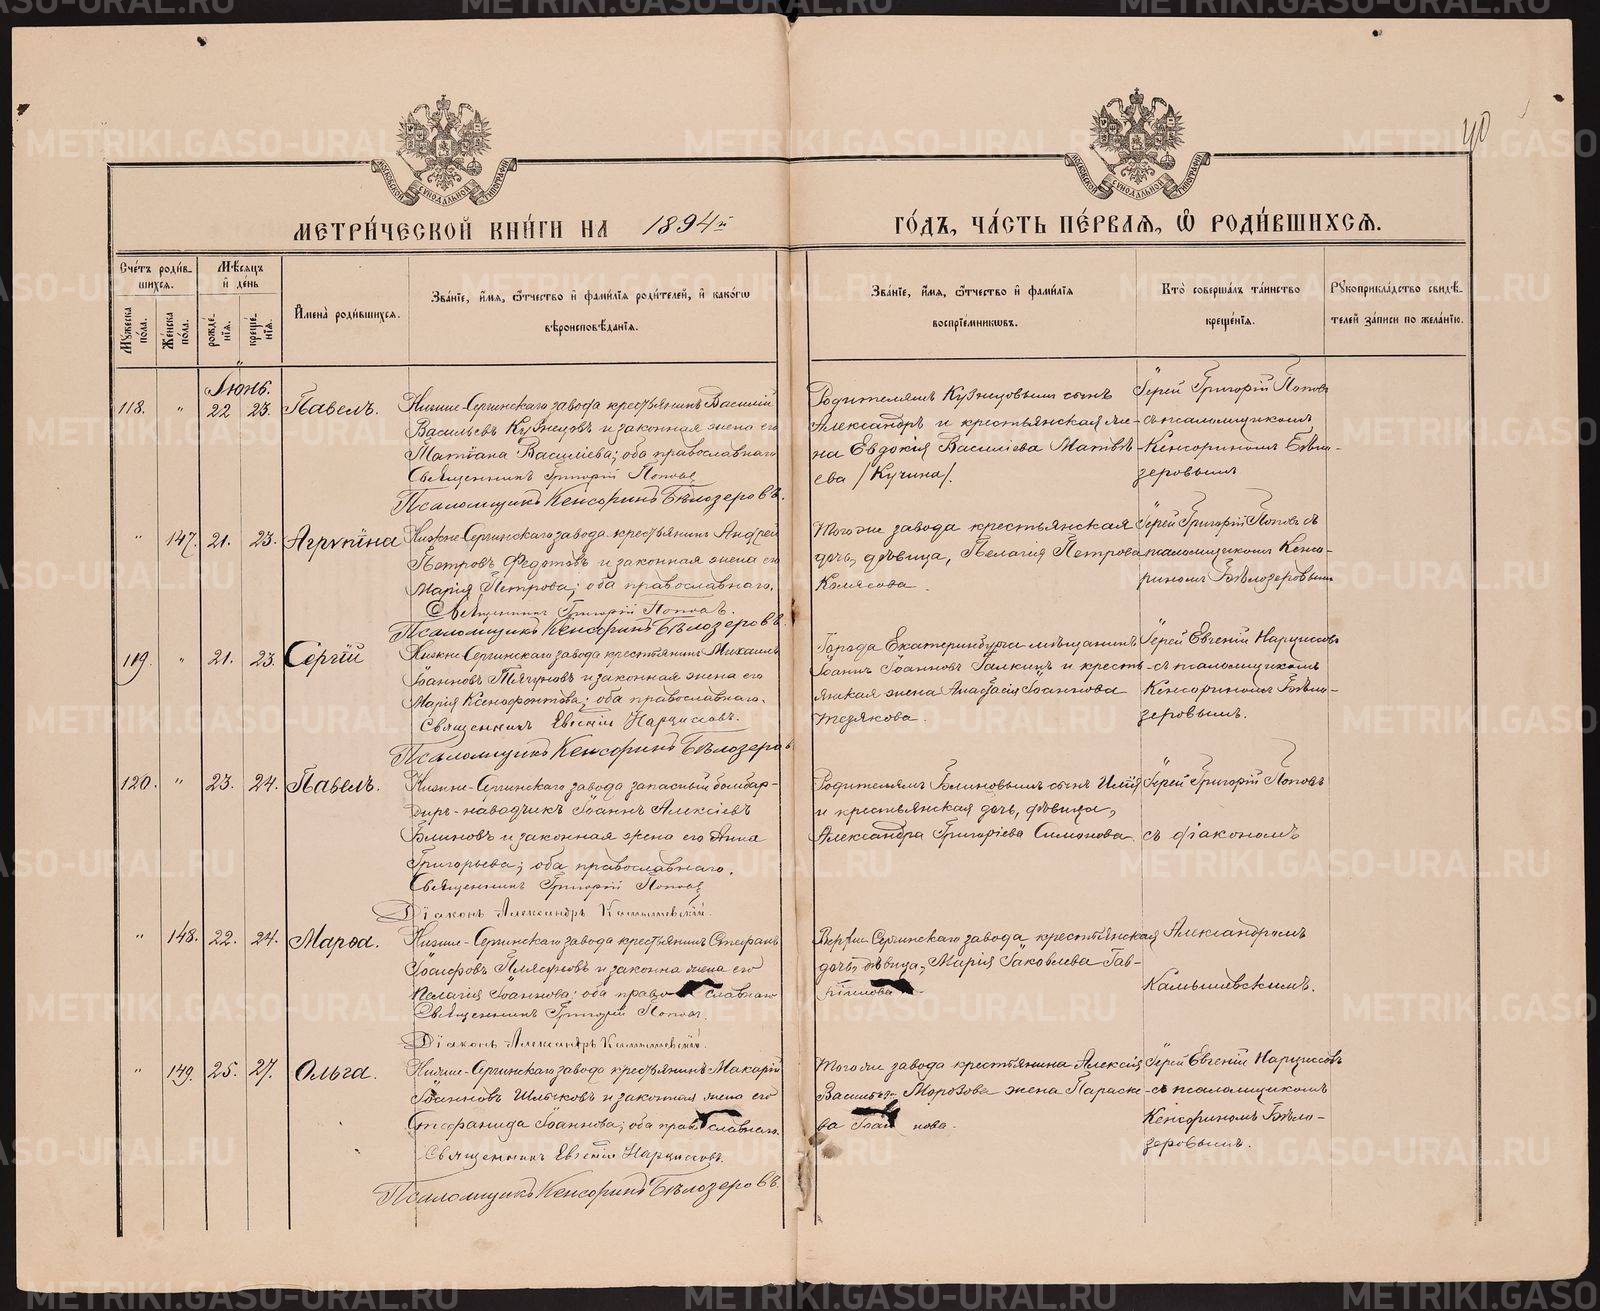 40
МОСКОВСКОЙ СѴНОДАЛЬНОЙ ТИПОГРАФІИ
МОСКОВСКОЙ СѴНОДАЛЬНОЙ ТИПОГРАФІИ
МЕТРИ́ЧЕСКОЙ КНИ́ГИ НА 1894й ГО́ДЪ, ЧА́СТЬ ПЕ́РВАЯ, Ѡ РОДИ́ВШИХСЯ.
Сче́тъ роди́в-
шихся.
Мѣ́сяцъ
и де́нь
Му́жеска
по́ла.
Же́нска
по́ла.
рожде́-
нія.
креще́-
нія.
Имена̀ роди́вшихся.
Зва́ніе, и́мя, ѻ҆́тчество и фами́лія роди́телей, и како́гѡ
вѣроисповѣ́данія.
Зва́ніе, и́мя, ѻ҆́тчество и фами́лія
воспріе́мниковъ.
Кто̀ соверша́лъ та́инство
креще́нія.
Рукоприкла́дство свидѣ́-
телей за́писи по жела́нію.
Іюнь.
118. " 22 23. Павелъ.
Нижне-Сергинскаго завода крестьянинъ Василій
Васильевъ Кузнецовъ и законная жена его
Татіана Василіева; оба православнаго
Священникъ Григорій Поповъ
Псаломщикъ Кенсоринъ Бѣлозеровъ.
Родителямъ Кузнецовымъ сынъ
Александръ и крестьянская же-
на Евдокія Василіева Матвѣ-
ева /Кучина/.
Іерей Григорій Поповъ
съ псаломщикомъ
Кенсориномъ Бѣло-
зеровымъ
" 147. 21. 23. Агрипина
Нижне-Сергинскаго завода крестьянинъ Андрей
Петровъ Федотовъ и законная жена его
Марія Петрова; оба православнаго.
Священникъ Григорій Поповъ.
Псаломщикъ Кенсоринъ Бѣлозеровъ.
Тогоже завода крестьянская
дочь, дѣвица, Пелагія Петрова
Колясова.
Іерей Григорій Поповъ съ
псаломщикомъ Кенсо-
риномъ Бѣлозеровымъ
119. " 21. 23. Сергій
Нижне-Сергинскаго завода крестьянинъ Михаилъ
Іоанновъ Тягуновъ и законная жена его
Марія Ксенофонтова; оба православнаго.
Священникъ Евгеній Нарциссовъ.
Псаломщикъ Кенсоринъ Бѣлозеровъ
Города Екатеринбурга мѣщанинъ
Іоаннъ Іоанновъ Галкинъ и кресть-
янская жена Анастасія Іоаннова
Іерей Евгеній Нарциссовъ
съ псаломщикомъ
Кенсориномъ Бѣло-
зеровымъ.
120. " 23. 24. Павелъ.
Нижне-Сергинскаго завода запасный бомбар-
диръ-наводчикъ Іоаннъ Алексіевъ
Блиновъ и законная жена его Анна
Григорьева; оба православнаго.
Священникъ Григорій Поповъ
Діаконъ Александръ Камышевскій.
Родителямъ Блиновымъ сынъ Илія
и крестьянская дочь, дѣвица,
Александра Григоріева Симонова
Іерей Григорій Поповъ
съ діакономъ
" 148. 22. 24. Марѳа.
Нижне-Сергинскаго завода крестьянинъ Стефанъ
Іосифовъ Плясуновъ и законна жена его
Пелагія Іоаннова; оба право славнаго
Священникъ Григорій Поповъ.
Діаконъ Александръ Камышевскій.
Верхне-Сергинскаго завода крестьянская
дочь, дѣвица, Марія Іаковлева Гав-
рилова
Александромъ
Камышевскимъ.
" 149. 25. 27. Ольга.
Нижне-Сергинскаго завода крестьянинъ Макарій
Іоанновъ Шлыковъ и законная жена его
Стефанида Іоаннова; оба прав славнаго.
Священникъ Евгеній Нарциссовъ.
Псаломщикъ Кенсоринъ Бѣлозеровъ.
Тогоже завода крестьянина Алексія
Васильев Морозова жена Параске-
ва нова.
Іерей Евгеній Нарциссовъ
съ псаломщикомъ
Кенсориномъ Бѣло-
зеровымъ.
METRIKI.GASO-URAL.RU